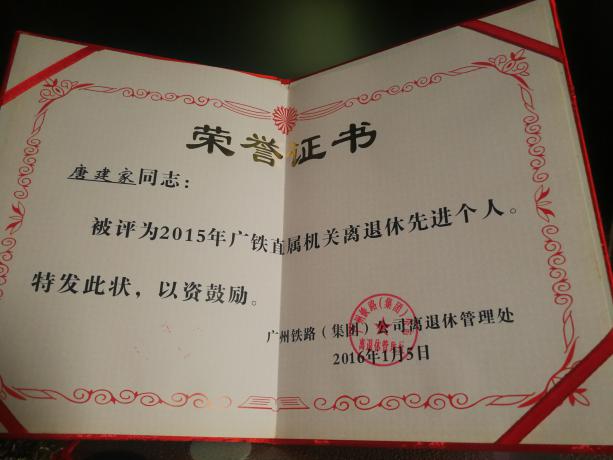 荣誉证书
唐建家同志：
被评为2015年广铁直属机关离退休先进个人。
特发此状，以资鼓励。
广州铁路（集团）公司离退休管理处
2016年1月5日